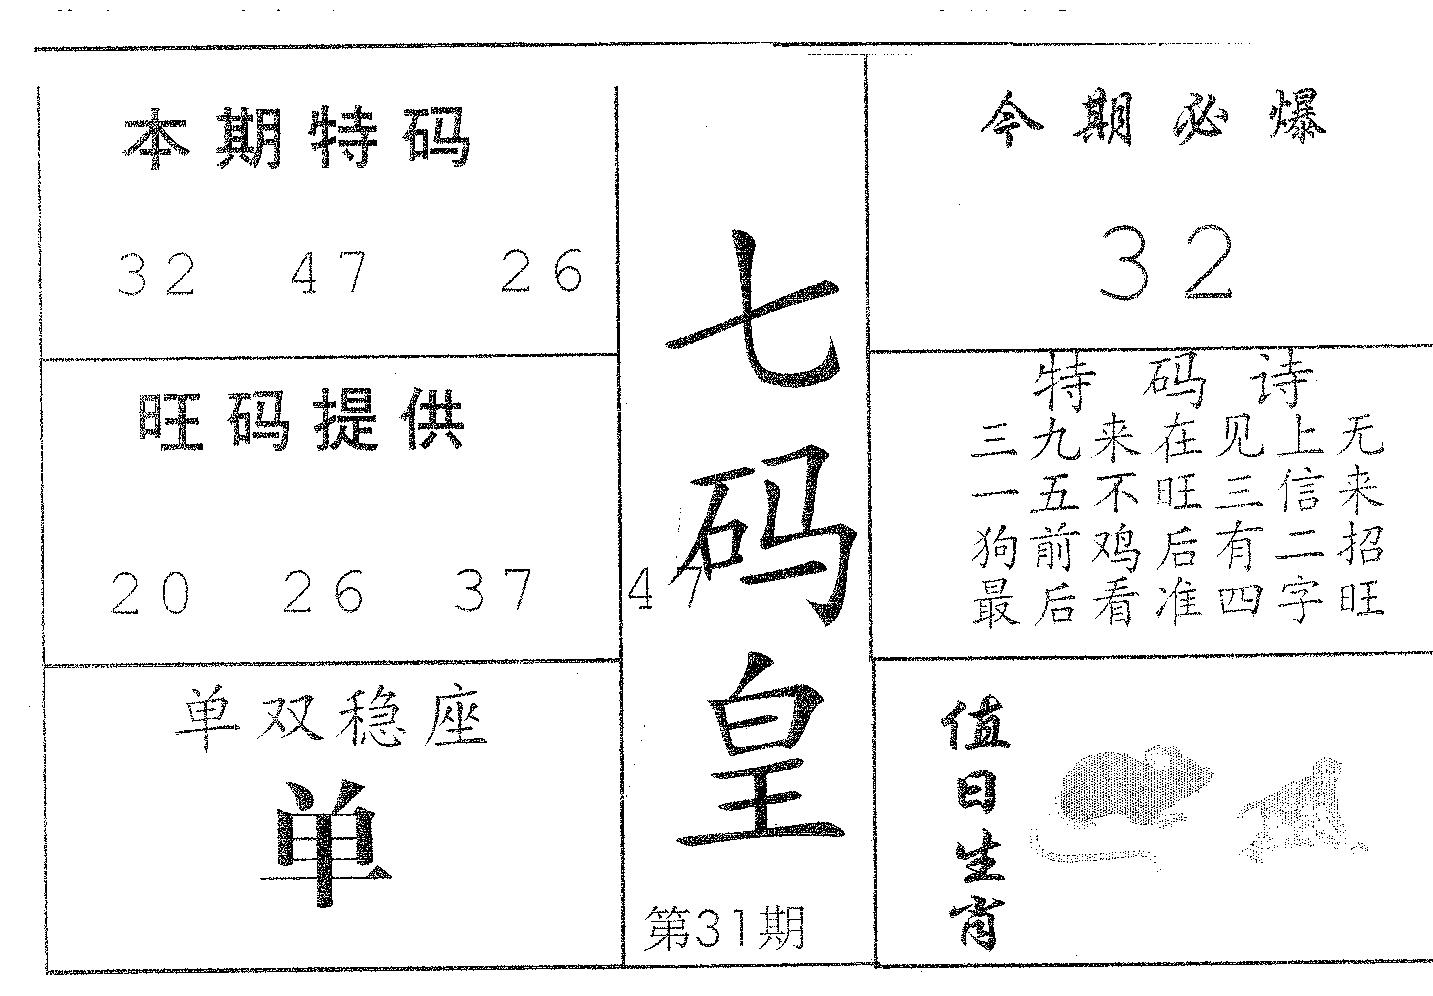 本期特码
32 47 26
旺码提供
20 26 37 47
单双稳座
单
七码皇
第31期
今期必爆
32
特码诗
三九来在见上无
一五不旺三信来
狗前鸡后有二招
最后看准四字旺
值日生肖